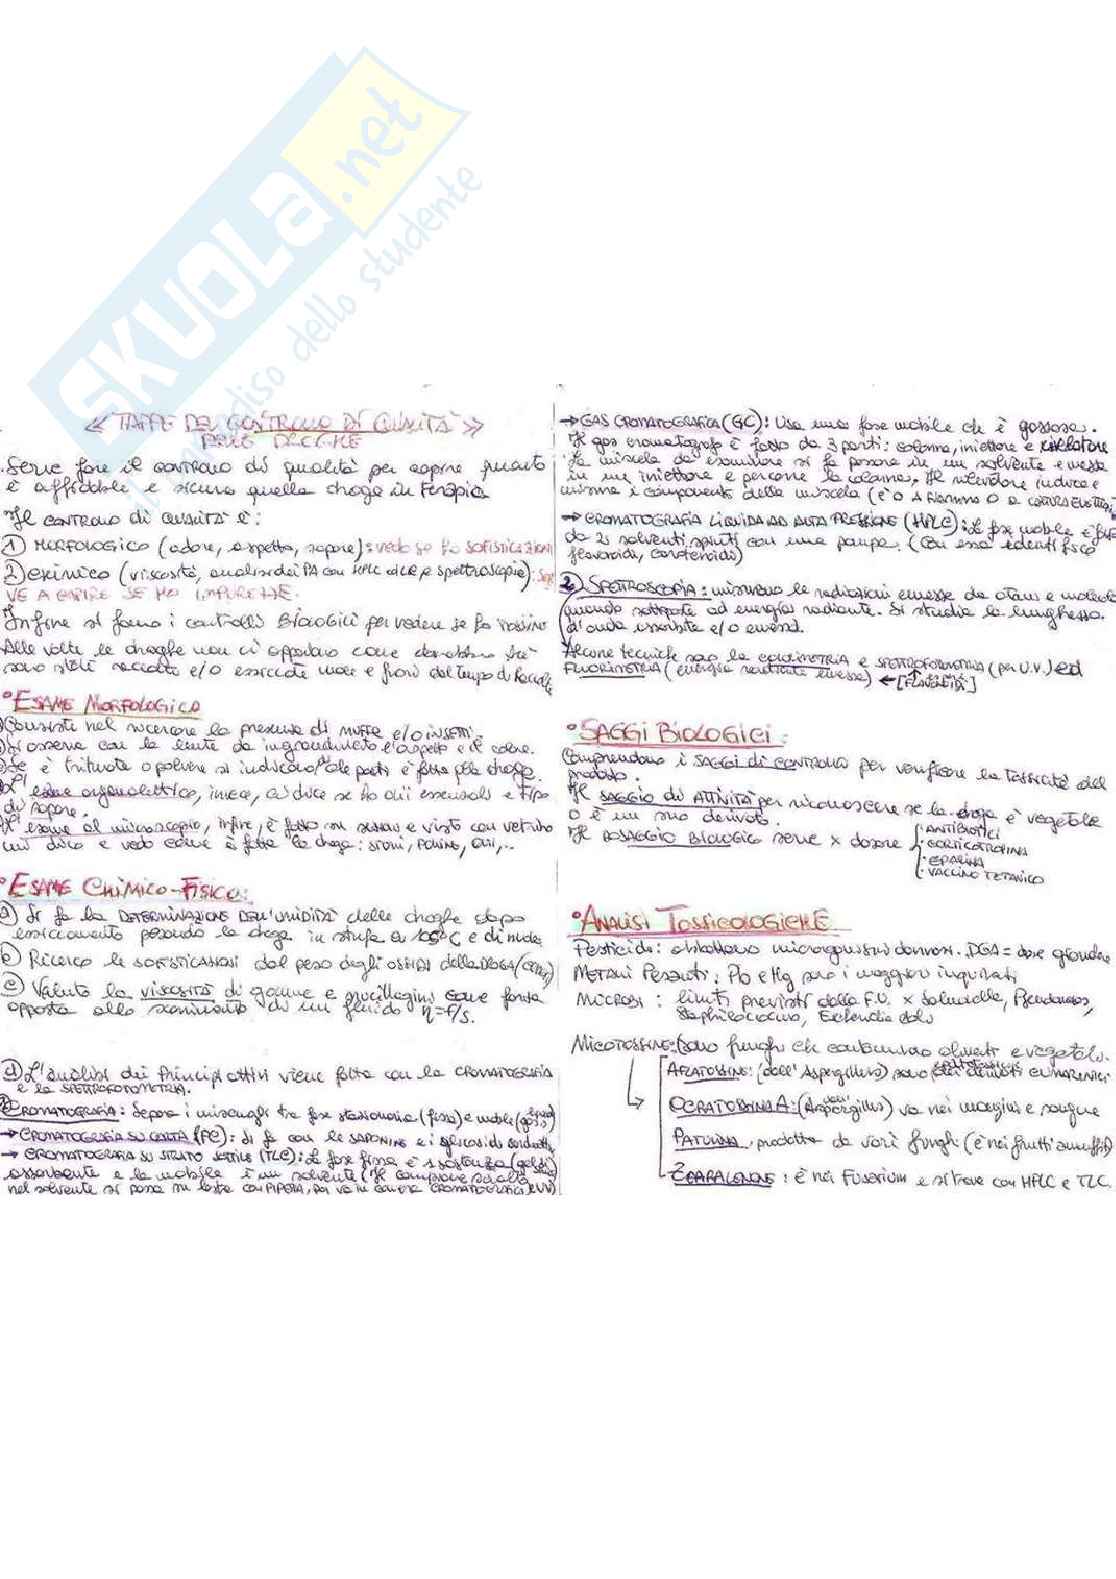 SKUOLA.net
il paradiso dello studente
« TAPPE DEL CONTROLLO DI QUALITÀ »
DELLE DROGHE
Serve fare il controllo di qualità per capire quanto
è affidabile e sicura quella droga in Terapia
Il CONTROLLO di QUALITÀ È:
1) MORFOLOGICO (odore, aspetto, sapore): vedo se ho SOFISTICAZIONI
2) CHIMICO (viscosità, analisi dei PA con HPLC o LC e spettroscopie): SER
VE A CAPIRE SE HO IMPUREZZE.
Infine si fanno i controlli BIOLOGICI per vedere se ho TOSSINE
Alle volte le droghe non ci appaiono come dovrebbero xkè
sono state raccolte e/o essiccate male e fuori dal Tempo di Raccolta
° ESAME MORFOLOGICO
Consiste nel ricercare la presenza di MUFFE e/o INSETTI.
Si osserva con la lente da ingrandimento l'aspetto e il colore.
Se è triturata o polvere si individuano le parti è fatta quella droga.
L'esame organolettico, invece, ci dice se ho olii essenziali e tipo
di sapore.
L'esame al microscopio, infine, è fatto su sezioni e visto con vetrino
mi dice e vedo come è fatta la droga: stomi, polline, olii,...
° ESAME CHIMICO-FISICO:
a) Si fa la DETERMINAZIONE DELL'UMIDITÀ delle droghe dopo
essiccamento pesando la droga in stufa a 105°C e di nuovo
b) Ricerco le SOFISTICAZIONI dal peso degli OSSIDI della DROGA (ceneri)
c) Valuto la viscosità di gomme e mucillagini come forza
opposta allo scorrimento di un fluido η=F/S.
d) L'analisi dei Principi attivi viene fatta con la CROMATOGRAFIA
e la SPETTROFOTOMETRIA.
CROMATOGRAFIA: Separa i miscugli tra fase stazionaria (fissa) e mobile (gas)
→ CROMATOGRAFIA SU CARTA (PC): si fa con le SAPONINE e i glicosidi
→ CROMATOGRAFIA SU STRATO SOTTILE (TLC): la fase fissa è 1 sostanza
assorbente e la mobile è un solvente (Il campione sciolto
nel solvente si posa su lastra con PIPETTA, poi va in camera CROMATOGRAFICA (UV))
→ GAS CROMATOGRAFIA (GC): Usa una fase mobile che è gassosa.
Il gas cromatografo è fatto da 3 parti: colonna, iniettore e rivelatore
La miscela da esaminare si fa passare in un solvente e messa
in un iniettore e percorre la colonna. Il rivelatore individua e
misura i componenti della miscela (è o A fiamma o a
→ CROMATOGRAFIA LIQUIDA AD ALTA PRESSIONE (HPLC): La fase mobile è fatta
da 2 solventi, spinti con una pompa. (Con essa identifico
flavonoidi, carotenoidi)
2) SPETTROSCOPIA: misurano le radiazioni emesse da atomi e molecole
quando sottoposte ad energia radiante. Si studia la lunghezza
d'onda assorbita e/o emessa.
Alcune tecniche sono la COLORIMETRIA e SPETTROFOTOMETRIA (per U.V.) ed
FLUORIMETRIA (energia radiante emessa) ←
° SAGGI BIOLOGICI:
Comprendono i SAGGI di CONTROLLO per verificare la tossicità del
prodotto.
Il SAGGIO di ATTIVITÀ per riconoscere se la droga è vegetale
o è un suo derivato.
Il DOSAGGIO BIOLOGICO serve x dosare
· ANTIBIOTICI
· CORTICOTROPINA
· EPARINA
· VACCINO TETANICO
° ANALISI TOSSICOLOGICHE
Pesticidi: abbattono microrganismi dannosi. DGA = dose giornaliera
METALLI Pesanti: Pb e Hg sono i maggiori inquinanti
MICROBI: limiti previsti dalla F.U. x Salmonella, Pseudomonas,
Staphilococcus, Escherichia coli
MICOTOSSINE: (sono funghi che contaminano alimenti e vegetali.
AFLATOSSINE: (dall'Aspergillus) sono dei derivati CUMARINICI
OCRATOSSINA A: (Aspergillus) va nei mangimi e sangue
PATULINA, prodotta da vari funghi (è nei frutti ammuffiti)
ZEARALENONE: è nei Fusarium e si trova con HPLC e TLC.